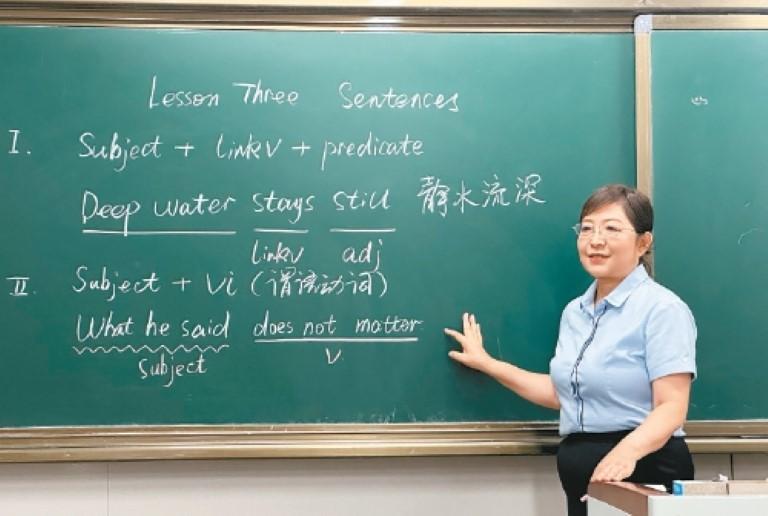 Lesson Three Sentences
I. Subject + linkv + predicate
Deep water stays still 静水流深
linkv adj
II Subject + Vi (谓语动词)
What he said does not matter
Subject V